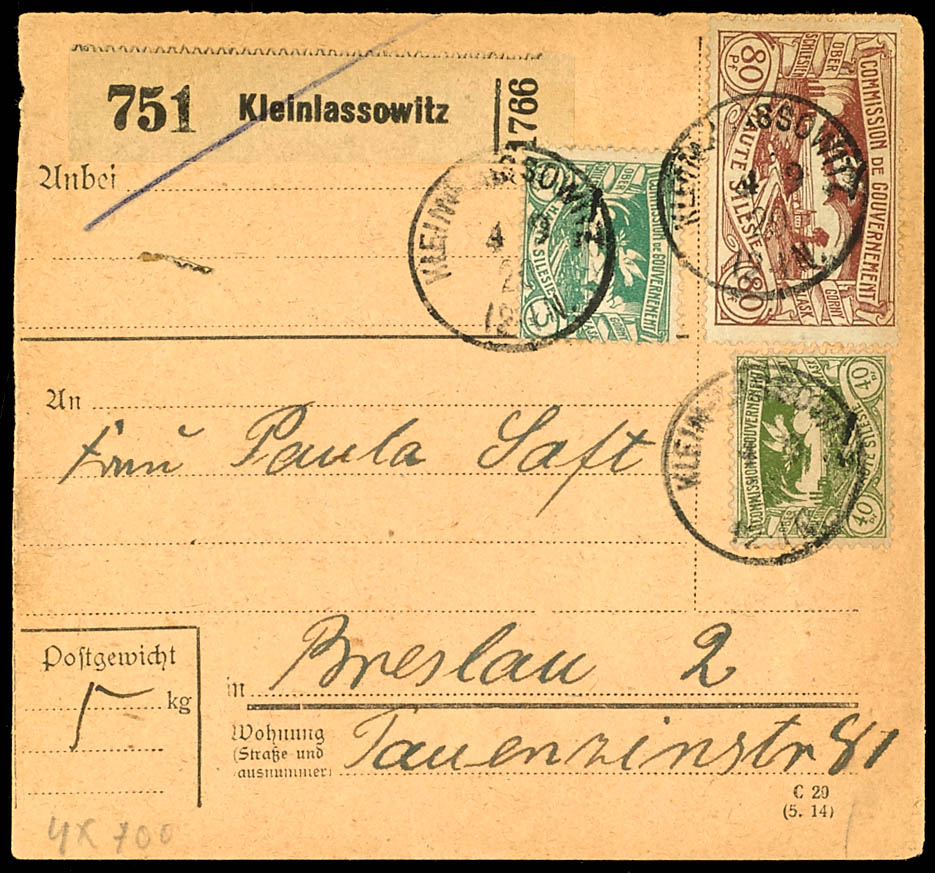 751 Kleinlassowitz 1766
COMMISSION DE GOUVERNEMENT
HAUTE SILESIE
OBER SCHLESIEN
GORNY
80 Pf
80
Anbei
COMMISSION DE GOUVERNEMENT
HAUTE SILESIE
OBER
5
KLEIN
4 9
An
Frau Paula Saft
COMMISSION DE GOUVERNEMENT
40
40
KLEIN
Postgewicht
5 kg
in Breslau 2
Wohnung
(Straße und
ausnummer)
Tauenzinstr 81
C 29
(5. 14)
4x 700